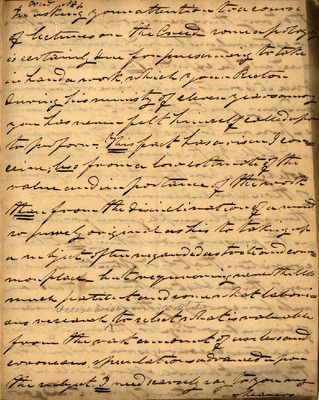 In asking your attention to a course
of lectures on the Creed some apology
is certainly due for presuming to take
in hand a work which your Rector
during his ministry of eleven years among
you has never felt himself called upon
to perform. This fact has arisen I con-
ceive, less from a low estimate of the
value and importance of the work
than from the disinclination of a mind
so purely original as his to take up
a subject often regarded as trite and com-
mon place but requiring nevertheless
much patient and somewhat labori-
ous research, to select what is valuable
from the vast amount of useless and
erroneous speculations advanced upon
the subject. I need scarcely say to you my